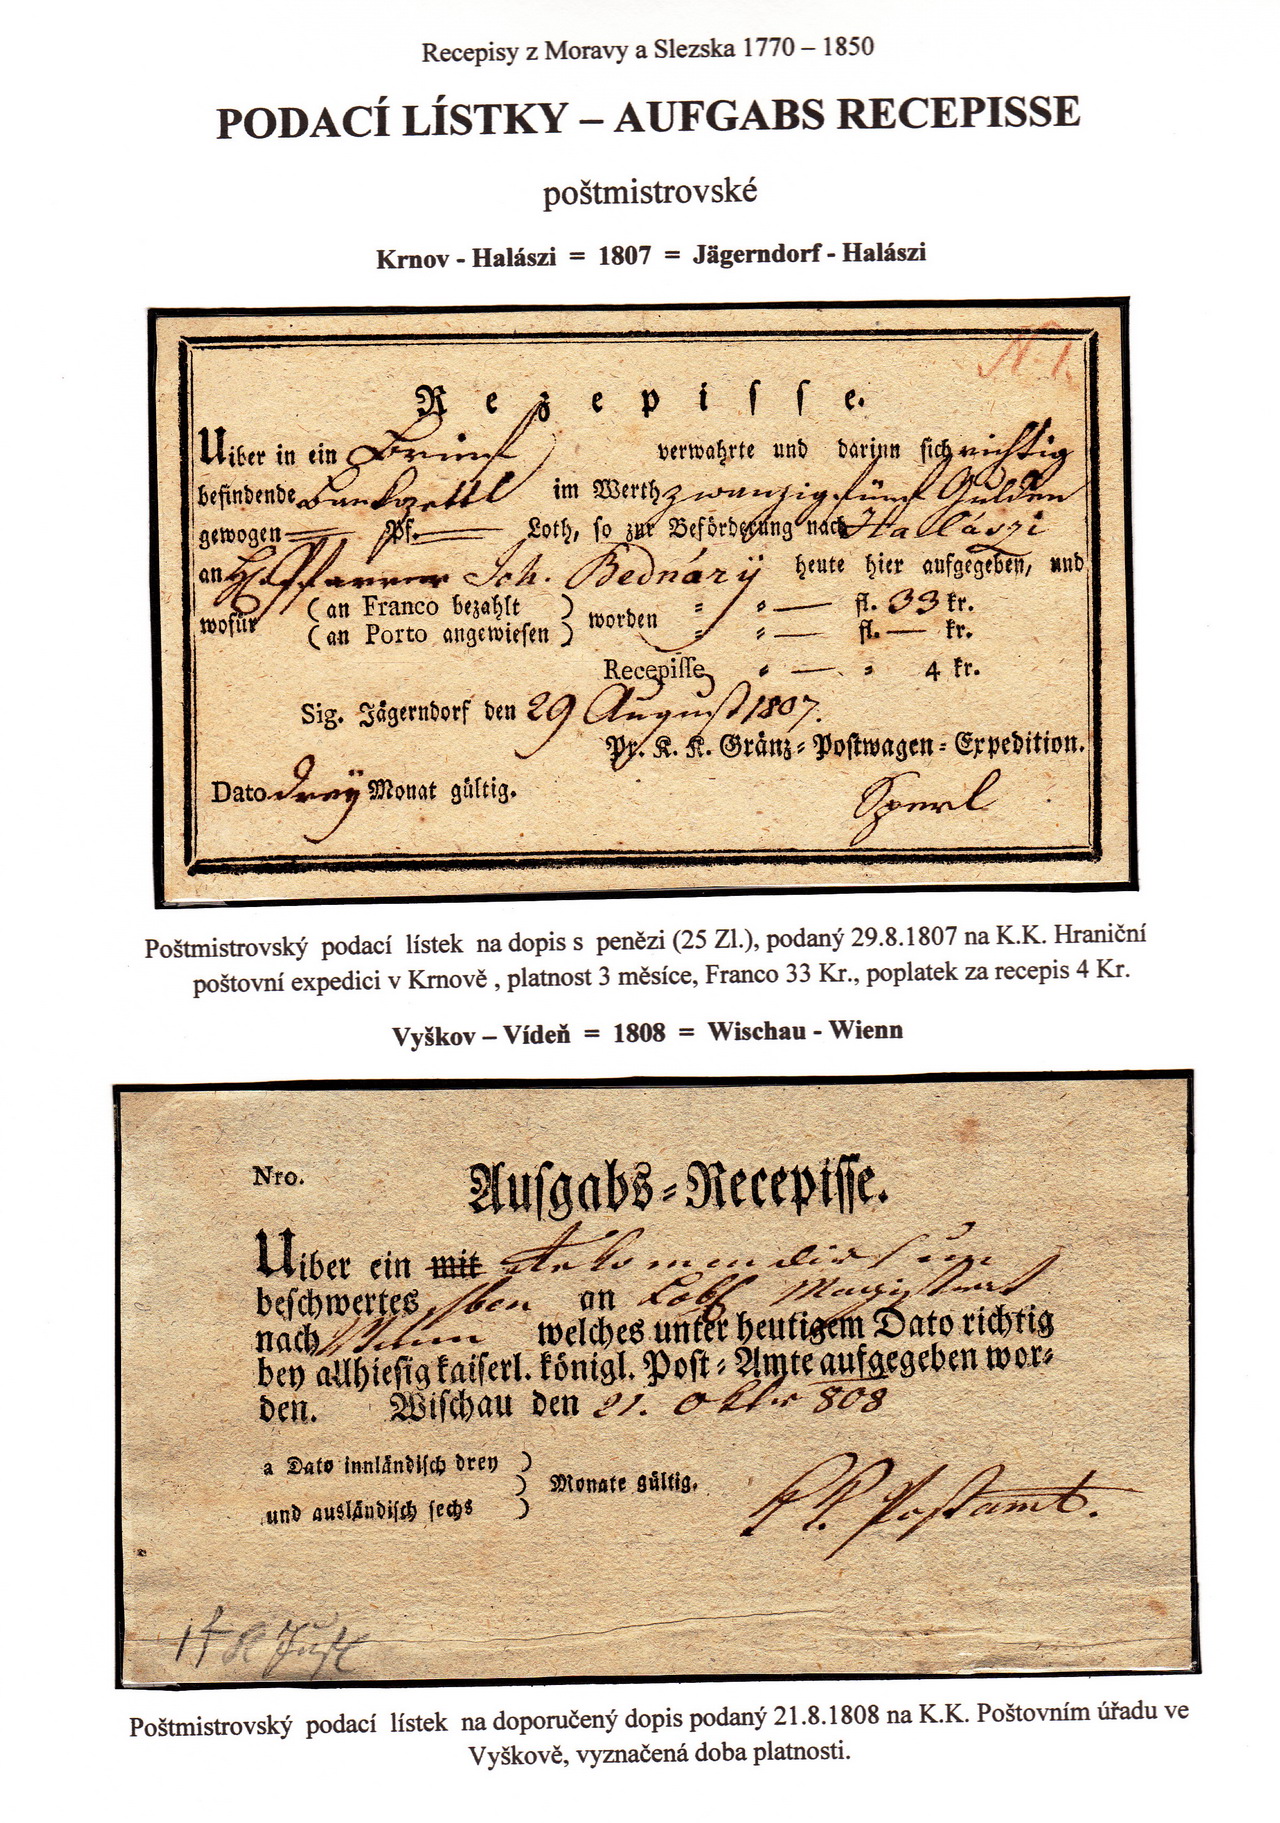 Recepisy z Moravy a Slezska 1770 – 1850
PODACÍ LÍSTKY – AUFGABS RECEPISSE
poštmistrovské
Krnov - Halászi = 1807 = Jägerndorf - Halászi
N. 1.
Rezepisse.
Uiber in ein Brief verwahrte und darinn sich richtig
befindende Bankozettl im Werth zwanzig fünf Gulden
gewogen Pf. Loth, so zur Beförderung nach Hallászi
an H. Pfarrer Joh. Bednárÿ heute hier aufgegeben, und
wofür (an Franco bezahlt ) worden = " — fl. 33 kr.
(an Porto angewiesen ) = " — fl. — kr.
Recepisse " — " 4 kr.
Sig. Jägerndorf den 29 August 1807.
Pr. K. K. Gränz=Postwagen=Expedition.
Dato dreÿ Monat gültig.
Sperl
Poštmistrovský podací lístek na dopis s penězi (25 Zl.), podaný 29.8.1807 na K.K. Hraniční
poštovní expedici v Krnově , platnost 3 měsíce, Franco 33 Kr., poplatek za recepis 4 Kr.
Vyškov – Vídeň = 1808 = Wischau - Wienn
Nro.
Aufgabs=Recepisse.
Uiber ein mit
beschwertes an Löbl Magistrat
nach Wienn welches unter heutigem Dato richtig
bey allhiesig kaiserl. königl. Post=Amte aufgegeben wor=
den. Wischau den 21. Oktbr 808
a Dato innländisch drey )
) Monate gültig.
und ausländisch sechs )
KK. Postamt.
Poštmistrovský podací lístek na doporučený dopis podaný 21.8.1808 na K.K. Poštovním úřadu ve
Vyškově, vyznačená doba platnosti.